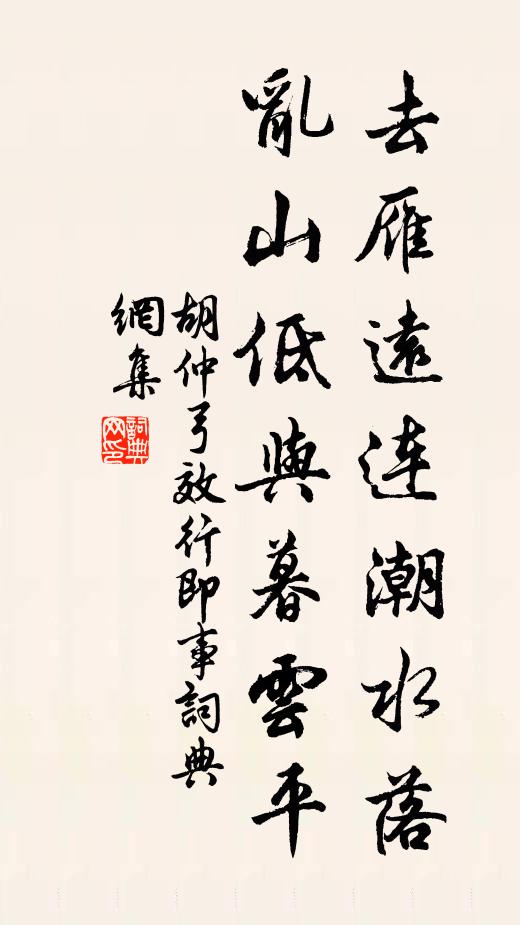 去雁遠連潮水落
亂山低與暮雲平
胡仲弓效行即事詞典
網集
詞典
网印